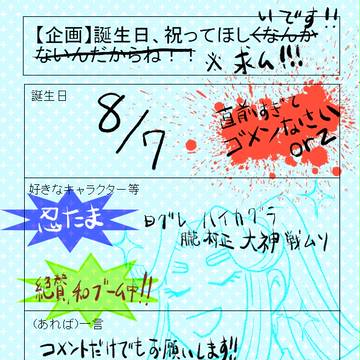 いです!!
【企画】誕生日、祝ってほしくなんか
ないんだからね!! ※ 求ム!!!
誕生日
8/7
直前すぎて
ゴメンなさい
orz
好きなキャラクター等
忍たま
日グレ ハイカグラ
朧村正 大神 戦ムソ
絶賛、和ブーム中!!
(あれば)一言
コメントだけでもお願いします!!